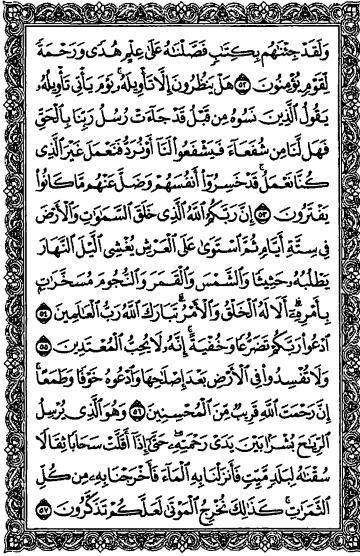 وَلَقَدْ جِئْنَٰهُم بِكِتَٰبٍ فَصَّلْنَٰهُ عَلَىٰ عِلْمٍ هُدًى وَرَحْمَةً
لِّقَوْمٍ يُؤْمِنُونَ ٥٢ هَلْ يَنظُرُونَ إِلَّا تَأْوِيلَهُۥ ۚ يَوْمَ يَأْتِى تَأْوِيلُهُۥ
يَقُولُ ٱلَّذِينَ نَسُوهُ مِن قَبْلُ قَدْ جَآءَتْ رُسُلُ رَبِّنَا بِٱلْحَقِّ
فَهَل لَّنَا مِن شُفَعَآءَ فَيَشْفَعُوا۟ لَنَآ أَوْ نُرَدُّ فَنَعْمَلَ غَيْرَ ٱلَّذِى
كُنَّا نَعْمَلُ ۚ قَدْ خَسِرُوٓا۟ أَنفُسَهُمْ وَضَلَّ عَنْهُم مَّا كَانُوا۟
يَفْتَرُونَ ٥٣ إِنَّ رَبَّكُمُ ٱللَّهُ ٱلَّذِى خَلَقَ ٱلسَّمَٰوَٰتِ وَٱلْأَرْضَ
فِى سِتَّةِ أَيَّامٍ ثُمَّ ٱسْتَوَىٰ عَلَى ٱلْعَرْشِ يُغْشِى ٱلَّيْلَ ٱلنَّهَارَ
يَطْلُبُهُۥ حَثِيثًا وَٱلشَّمْسَ وَٱلْقَمَرَ وَٱلنُّجُومَ مُسَخَّرَٰتٍۭ
بِأَمْرِهِۦٓ ۗ أَلَا لَهُ ٱلْخَلْقُ وَٱلْأَمْرُ ۗ تَبَارَكَ ٱللَّهُ رَبُّ ٱلْعَٰلَمِينَ ٥٤
ٱدْعُوا۟ رَبَّكُمْ تَضَرُّعًا وَخُفْيَةً ۚ إِنَّهُۥ لَا يُحِبُّ ٱلْمُعْتَدِينَ ٥٥
وَلَا تُفْسِدُوا۟ فِى ٱلْأَرْضِ بَعْدَ إِصْلَٰحِهَا وَٱدْعُوهُ خَوْفًا وَطَمَعًا ۚ
إِنَّ رَحْمَتَ ٱللَّهِ قَرِيبٌ مِّنَ ٱلْمُحْسِنِينَ ٥٦ وَهُوَ ٱلَّذِى يُرْسِلُ
ٱلرِّيَٰحَ بُشْرًۢا بَيْنَ يَدَىْ رَحْمَتِهِۦ ۖ حَتَّىٰٓ إِذَآ أَقَلَّتْ سَحَابًا ثِقَالًا
سُقْنَٰهُ لِبَلَدٍ مَّيِّتٍ فَأَنزَلْنَا بِهِ ٱلْمَآءَ فَأَخْرَجْنَا بِهِۦ مِن كُلِّ
ٱلثَّمَرَٰتِ ۚ كَذَٰلِكَ نُخْرِجُ ٱلْمَوْتَىٰ لَعَلَّكُمْ تَذَكَّرُونَ ٥٧